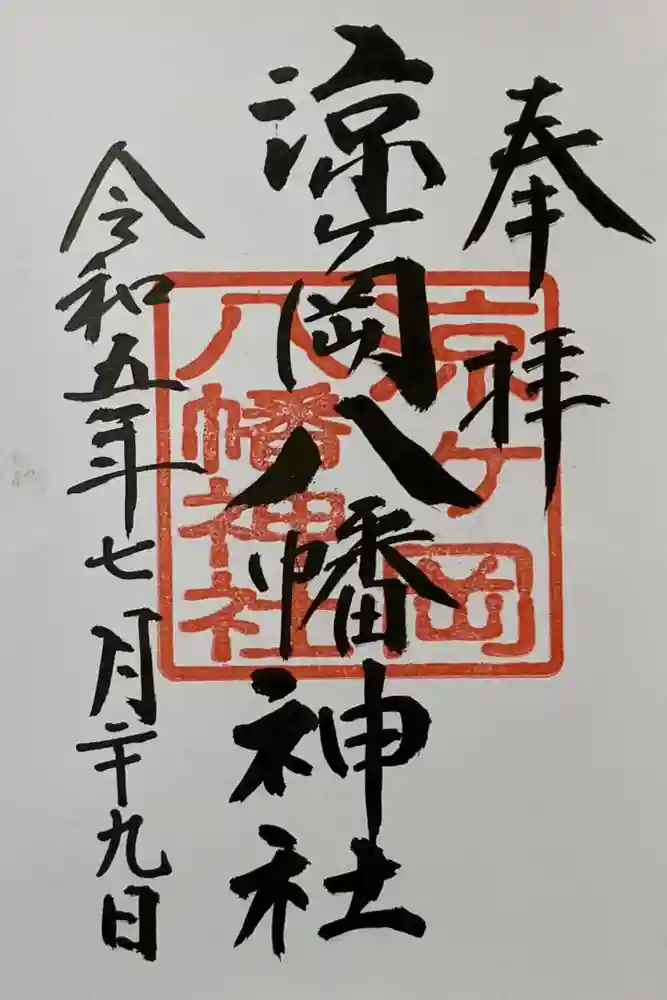 奉拝
涼ヶ岡八幡神社
涼ヶ岡
八幡神社
令和五年七月二十九日